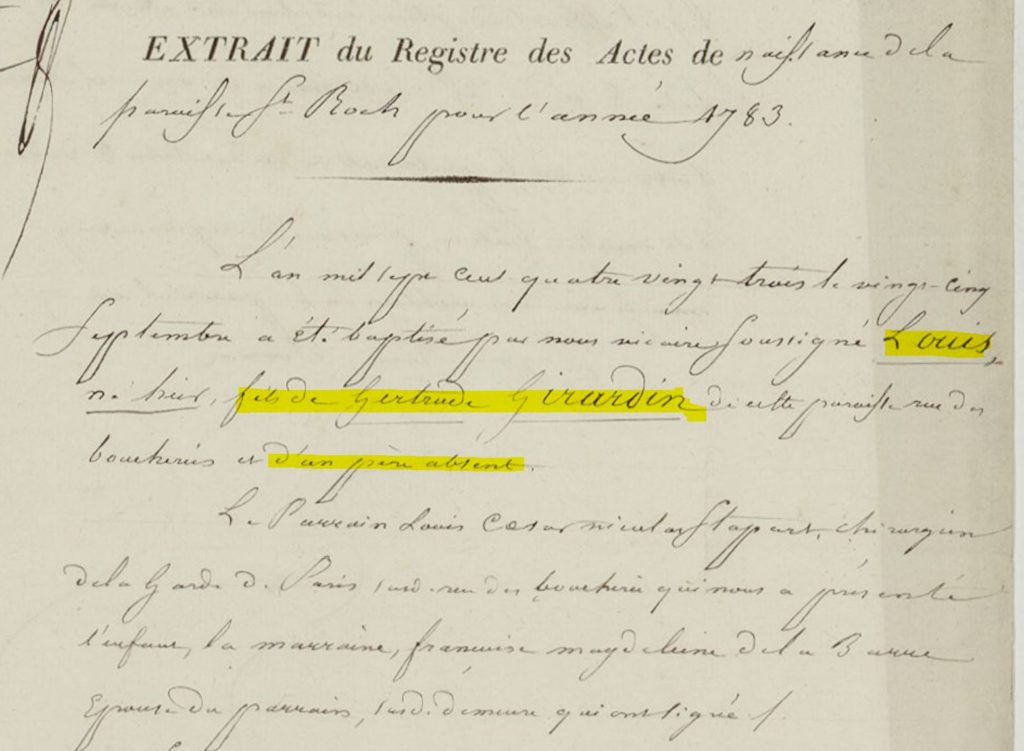 EXTRAIT du Registre des Actes de naissance de la
paroisse St Roch pour l'année 1783.
L'an mil sept cent quatre vingt trois le vingt-cinq
Septembre a été baptisé par nous vicaire Soussigné Louis,
né hier, fils de Gertrude Girardin de cette paroisse rue des
boucheries et d'un père absent.
Le Parrain Louis Cæsar nicolas Stapart, chirurgien
de la Garde de Paris susd. rue des boucherie qui nous a présenté
l'enfant, la marraine, francoise magdeleine de la Barre
Epouse du parrain, susd. demeure qui ont signé /.